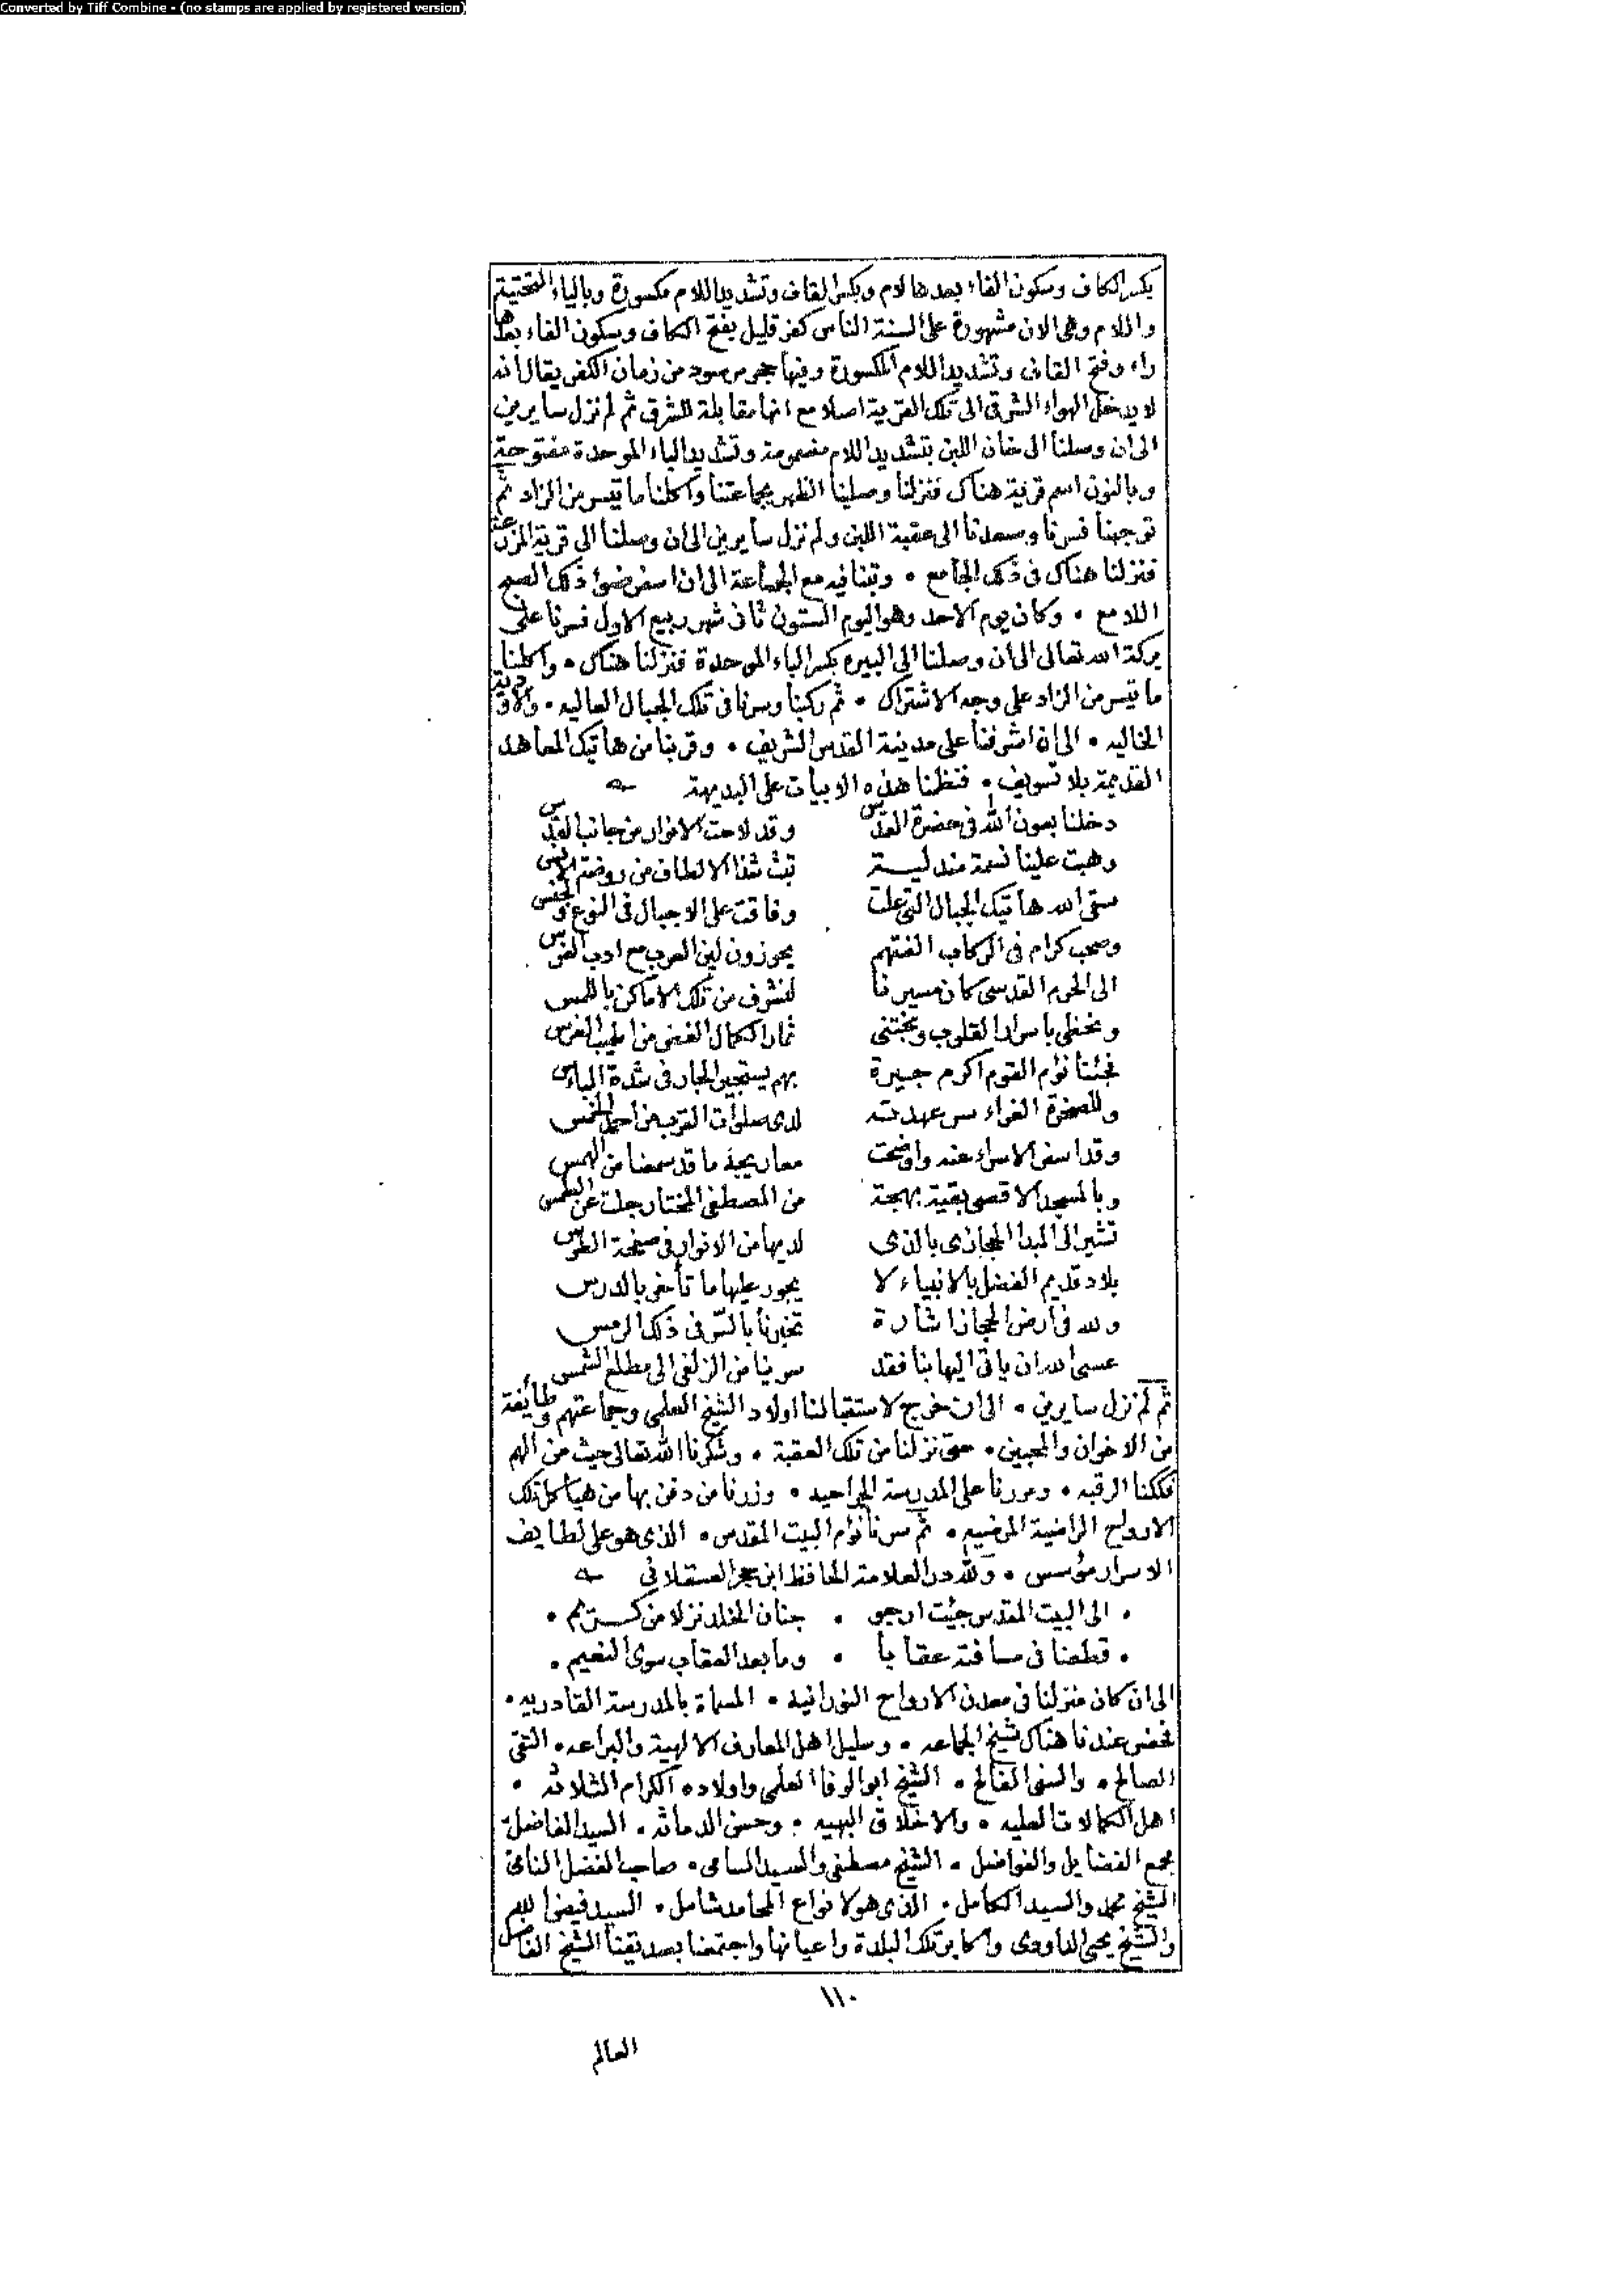 Converted by Tiff Combine - (no stamps are applied by registered version)
بكسر الكاف وسكون الفاء بعدها لام وبكسر القاف وتشديد اللام مكسورة وبالياء التحتية
واللام وهي الان مشهورة على السنة الناس كفر قليل بفتح الكاف وسكون الفاء بعدها
راء وفتح القاف وتشديد اللام المكسورة وفيها حجر مرصود من زمان الكفر يقال أنه
لا يدخل الهواء الشرقى الى تلك القرية اصلا مع انها مقابلة للشرق ثم لم نزل سايرين
الى ان وصلنا الى خان اللبن بتشديد اللام مضمومة وتشديد الباء الموحدة مفتوحة
وبالنون اسم قرية هناك فنزلنا وصلينا الظهر بجماعتنا وأكلنا ما تيسر من الزاد ثم
توجهنا فسرنا وصعدنا الى عقبة اللبن ولم نزل سايرين الى ان وصلنا الى قرية المزرعة
فنزلنا هناك فى ذلك الجامع • وبتنا فيه مع الجماعة الى ان اسفر ضوء ذلك الصبح
اللامع • وكان يوم الاحد وهو اليوم الستون ثانى شهر ربيع الاول فسرنا على
بركة الله تعالى الى ان وصلنا الى البيره بكسر الباء الموحدة فنزلنا هناك • وأكلنا
ما تيسر من الزاد على وجه الاشتراك • ثم ركبنا وسرنا فى تلك الجبال العاليه • والاودية
الخاليه • الى ان اشرفنا على مدينة القدس الشريف • وقربنا من هاتيك المعاهد
القديمة بلا تسويف • فنظمنا هذه الابيات على البديهة
دخلنا بعون الله فى حضرة القدس وقد لاحت الانوار من جانب القدس
وهبت علينا نسمة مندلية تبث شذا الالطاف من روضة الانس
سقى الله هاتيك الجبال التى علت وفاقت على الاجبال فى النوع والجنس
وصحب كرام فى الركاب الفتهم يحوزون لين العرب مع ادب الفرس
الى الحرم القدسى كان مسيرنا لنشرف من تلك الاماكن باللمس
ونحظى باسرار القلوب ونجتنى ثمار الكمال الغض من اطيب الغرس
فجئنا نؤم القوم أكرم جيرة بهم يستجير الجار فى شدة الباس
وللصخرة الغراء سر عهدته لدى صلوات القرب من اجمل الخمس
وقد اسفر الاسراء عنه واوضحت معاريجه ما قد سمعنا من الهمس
وبالمسجد الاقصى بقية بهجة من المصطفى المختار جلت عن الطمس
تشير الى البدر الحجازى بالذى لديها من الانوار فى صفحة الطرس
بلاد قديم الفضل بالانبياء لا يجور عليها ما تأخر بالدرس
ولله فى أرض الحجاز اشارة تخبرنا بالسر فى ذلك الرمس
عسى الله ان ياتى اليها بنا فقد سرينا من الزلفى الى مطلع الشمس
ثم لم نزل سايرين • الى ان خرج لاستقبالنا اولاد الشيخ العلمى وجماعتهم وطائفة
من الاخوان والمحبين • حتى نزلنا من تلك العقبة • وشكرنا الله تعالى حيث من الهم
فككنا الرقبه • ومررنا على المدرسة الجراحيه • وزرنا من دفن بها من هياكل تلك
الارواح الراضية المرضيه • ثم سرنا نؤم البيت المقدس • الذى هو على لطايف
الاسرار مؤسس • ولله در العلامة الحافظ ابن حجر العسقلانى
• الى البيت المقدس جئت ارجو • جنان الخلد نزلا من كريم •
• قطعنا فى مسافته عقابا • وما بعد العقاب سوى النعيم •
الى ان كان منزلنا فى معدن الارواح النورانية • المسماة بالمدرسة القادريه •
فحضر عندنا هناك شيخ الجماعه • وسليل اهل المعارف الالهية والبراعه • التقى
الصالح • والسنى الفالح • الشيخ ابو الوفا العلمى واولاده الكرام الثلاثه •
اهل الكمالات العليه • والاخلاق البهيه • وحسن الدماثه • السيد الفاضل
مجمع الفضايل والفواضل • الشيخ مصطفى والسيد السامى • صاحب الفضل النامى
الشيخ محمد والسيد الكامل • الذى هو لانواع المحامد شامل • السيد فيض الله
والشيخ يحيى الداوودى وأكابر تلك البلدة واعيانها واجتمعنا بصديقنا الشيخ الفاضل
١١٠
العالم